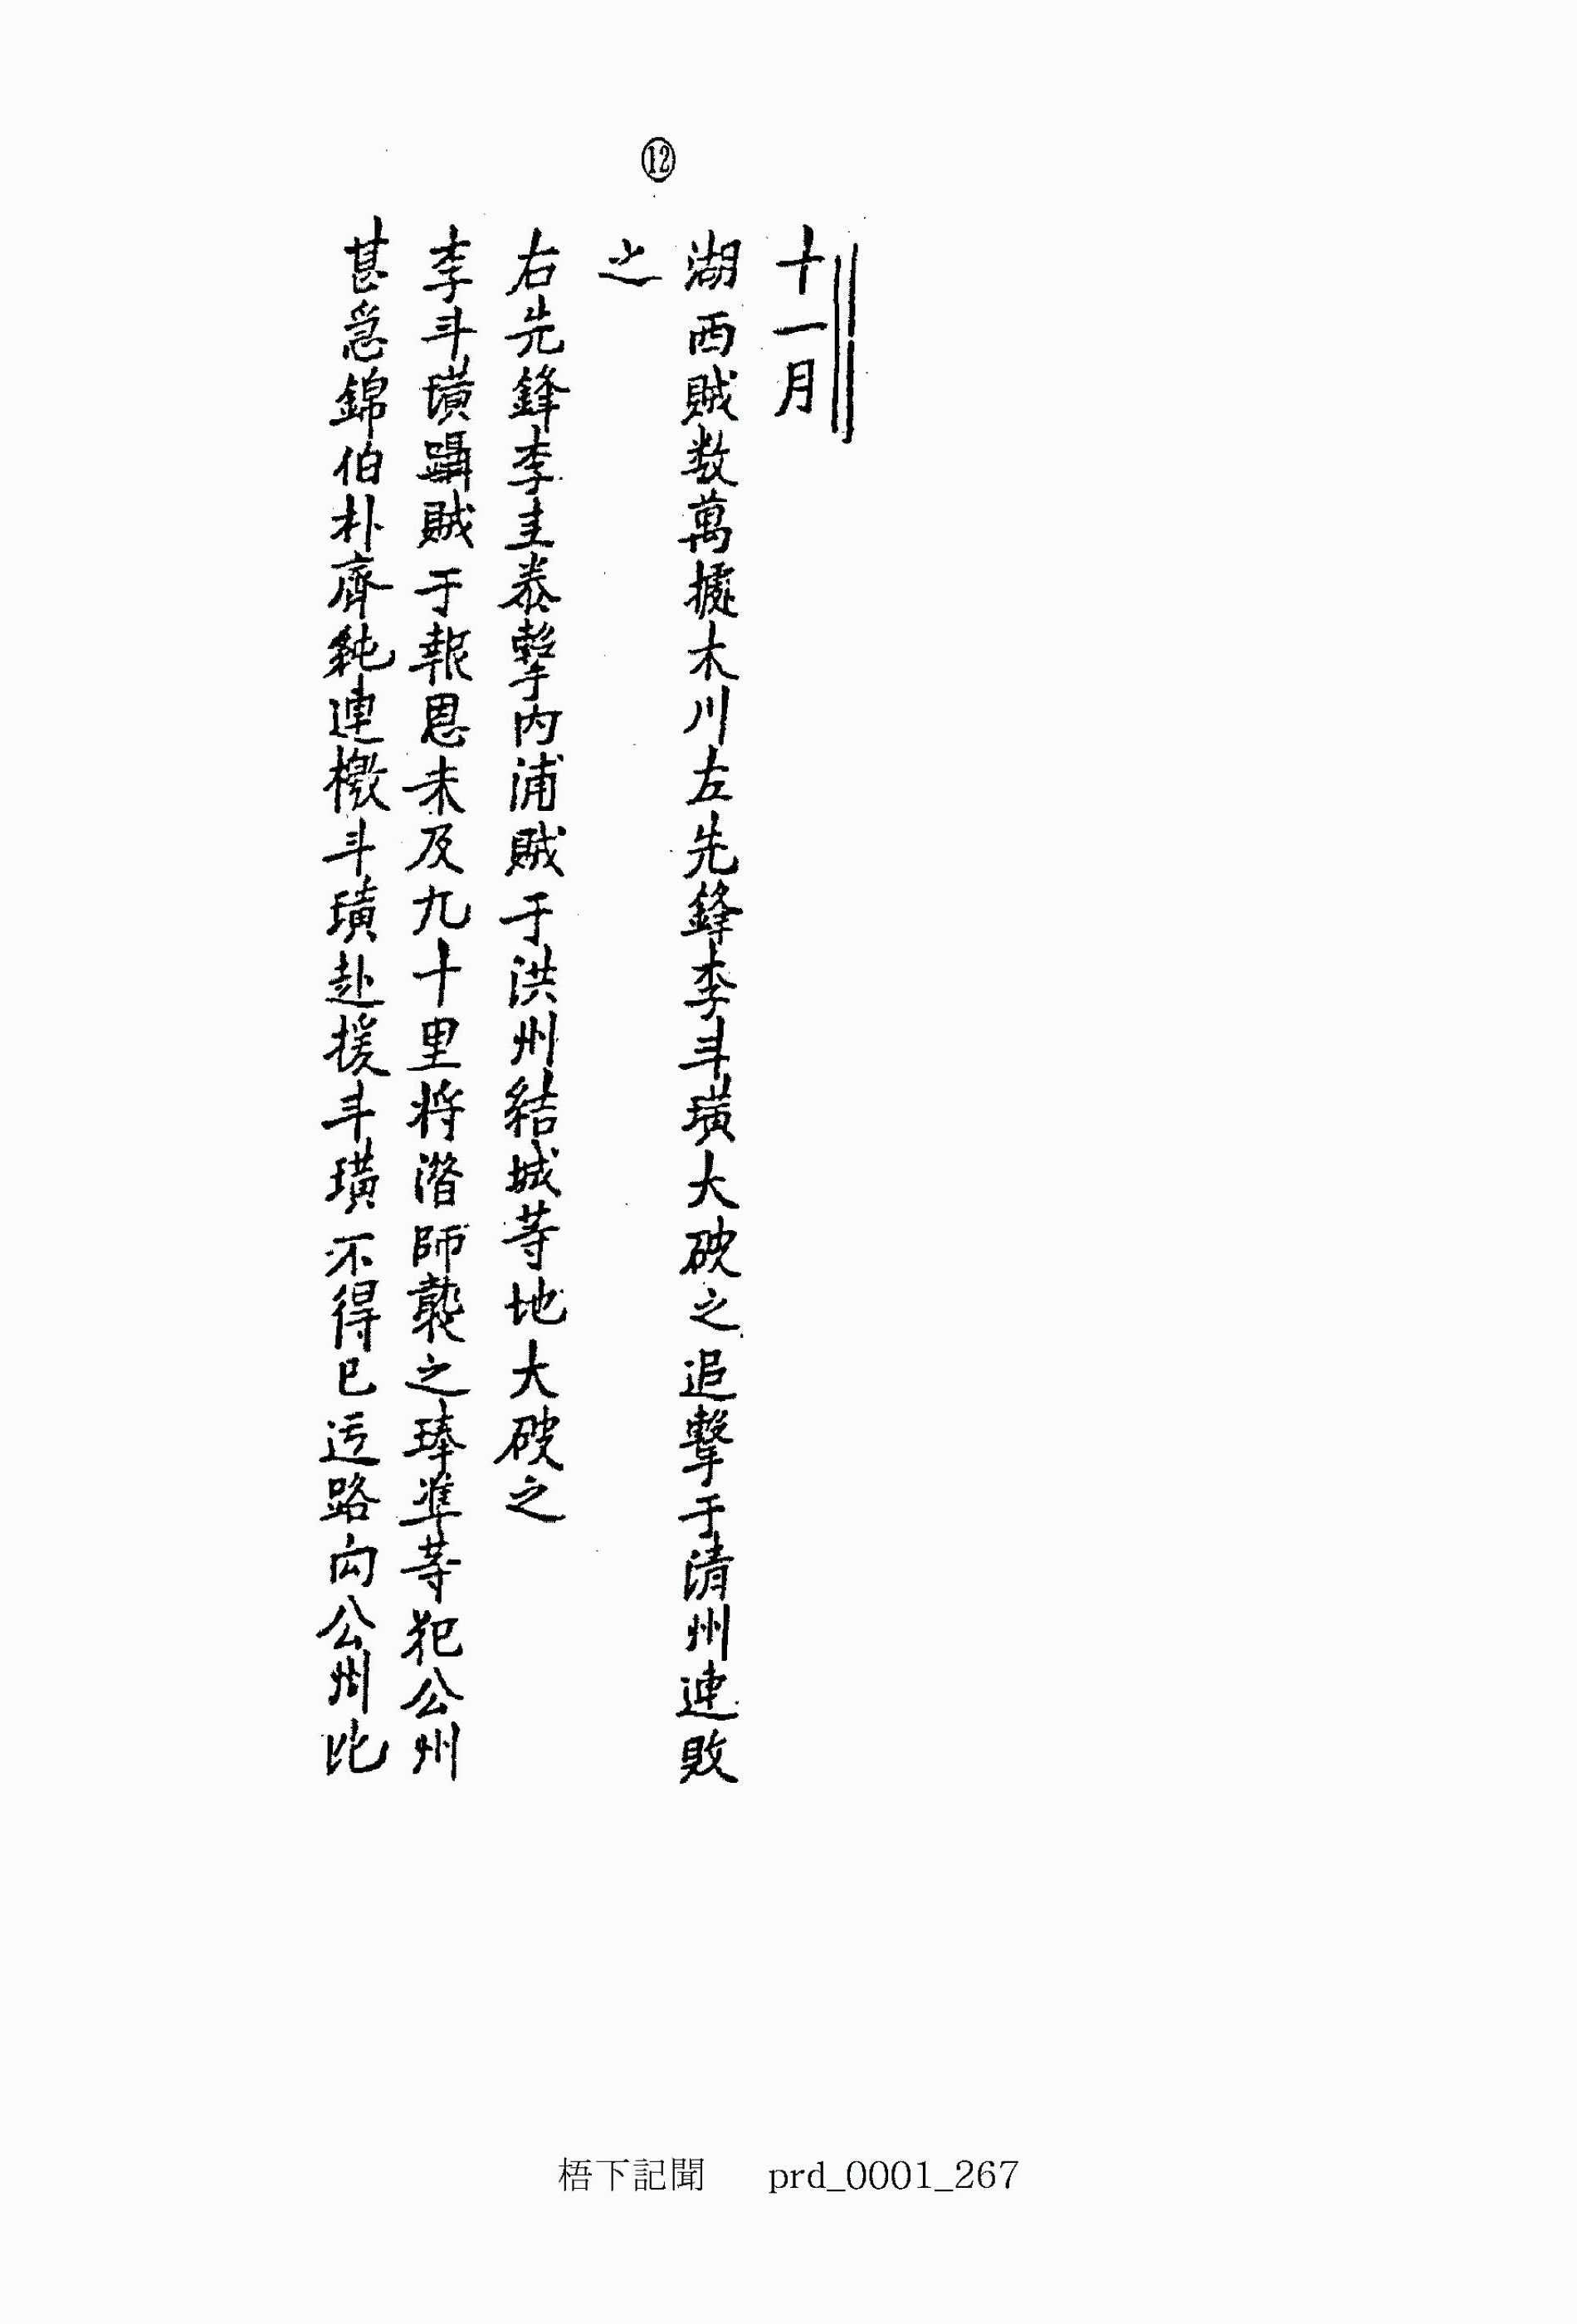 ⑫
十一月
湖西賊数萬據木川左先鋒李斗璜大破之追擊于清州連敗
之
右先鋒李圭泰擊内浦賊于洪州結城等地大破之
李斗璜躡賊于報恩未及九十里将潛師襲之琫準等犯公州
甚急錦伯朴齊純連檄斗璜赴援斗璜不得已迃路向公州比
梧下記聞 prd_0001_267